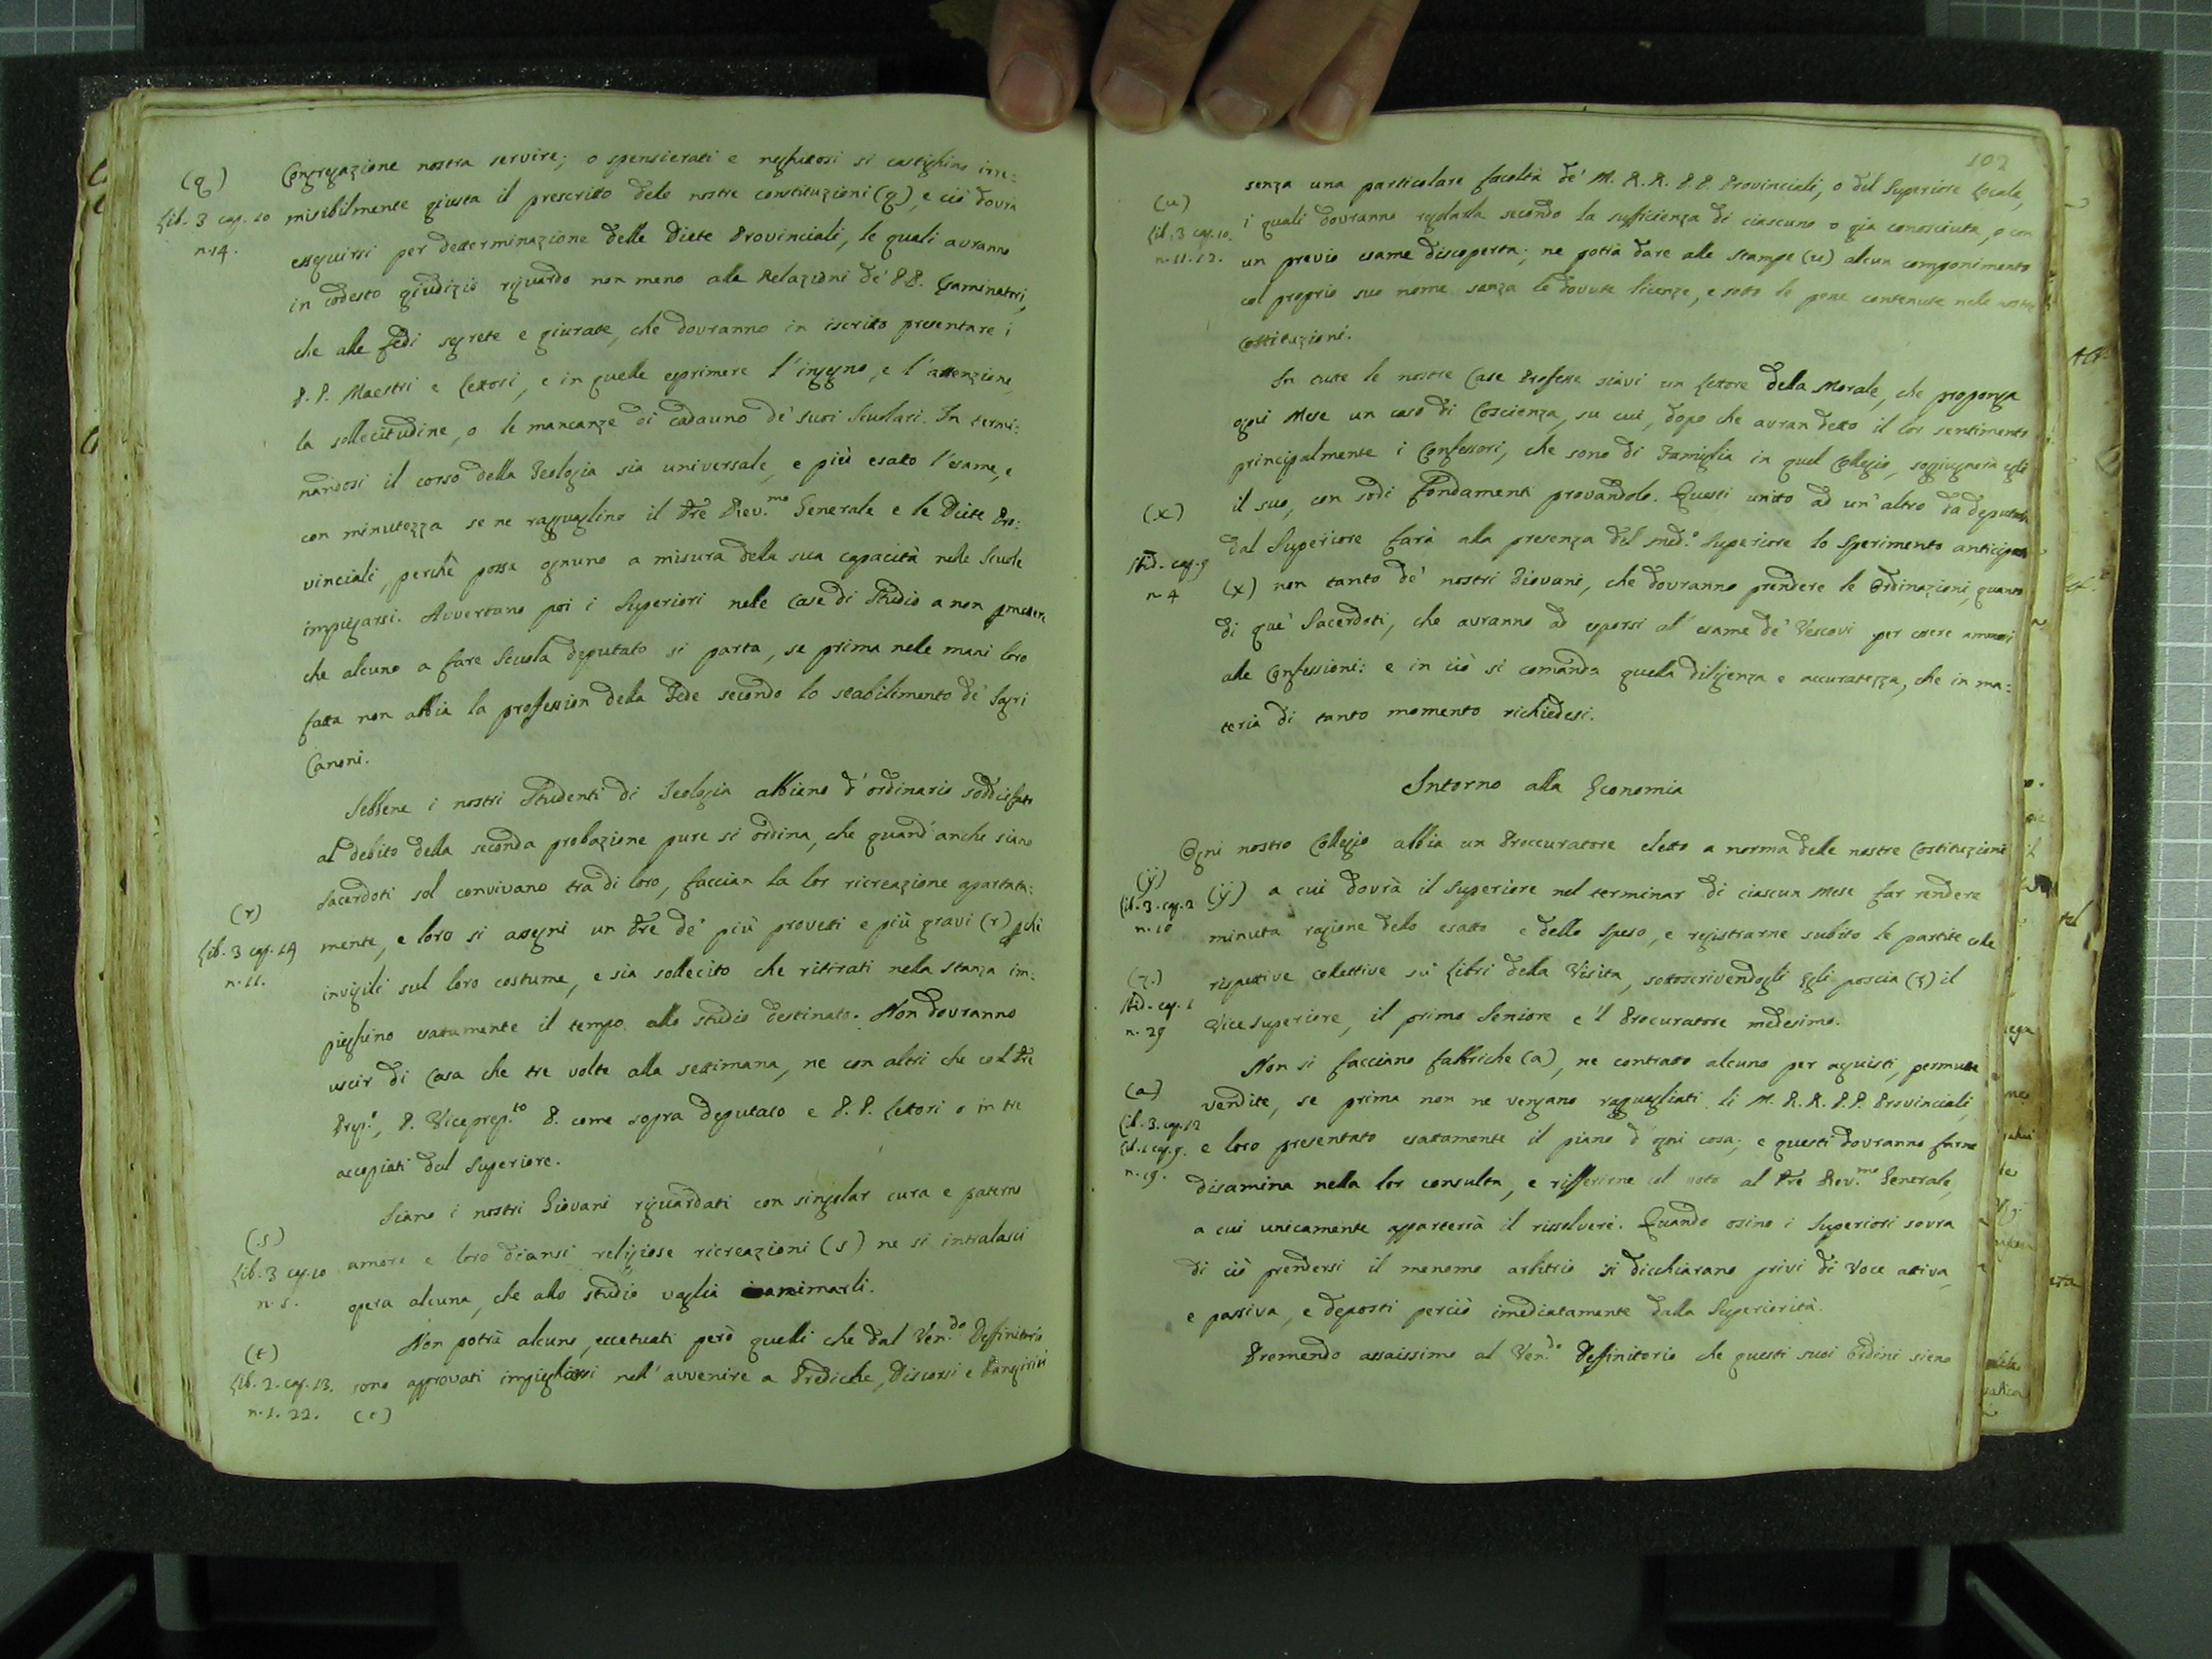 (q)
Lib. 3 cap. 10
n. 14.
Congregazione nostra servire; o spensierati e neghitosi si castighino irre:
misibilmente giusta il prescritto delle nostre constituzioni (q), e ciò dovrà
esseguirsi per determinazione delle Diete Provinciali, le quali avranno
in codesto giudizio riguardo non meno alle Relazioni de' PP. Esaminatori,
che alle fedi segrete e giurate, che dovranno in iscritto presentare i
P. P. Maestri e Lettori, e in quelle esprimere l'ingegno, e l'attenzione,
la sollecitudine, o le mancanze di cadauno de' suoi Scuolari. In termi:
nandosi il corso della Teologia sia universale, e più esato l'esame, e
con minutezza se ne ragguaglino il Pre Rev.mo Generale e le Diete Pro:
vinciali, perchè possa ognuno a misura della sua capacità nelle Scuole
impiegarsi. Avvertano poi i Superiori nele Case di Studio a non
che alcuno a fare Scuola deputato si parta, se prima nele mani loro
fatta non abbia la profession della Fede secondo lo stabilimento de' Sagri
Canoni.
Sebbene i nostri Studenti di Teologia abbiano d'ordinario soddisfato
al debito della seconda probazione pure si ordina, che quand'anche siano
Sacerdoti sol convivano tra di loro, faccian la lor ricreazione apartata:
(r)
Lib. 3 cap. 14
n. 11.
mente, e loro si assegni un Pre de' più provetti e più gravi (r)
invigili sul loro costume, e sia sollecito che ritirati nella stanza im:
pieghino esatamente il tempo allo studio destinato. Non dovranno
uscir di Casa che tre volte alla settimana, ne con altri che col Pre
Prep.o, P. Viceprep.to P. come sopra deputato e P. P. Lettori o in tre
accopiati dal Superiore.
Siano i nostri Giovani riguardati con singolar cura e paterno
(s)
Lib. 3 cap. 10
n. 5.
amore e loro diansi religiose ricreazioni (s) ne si intralasci
opera alcuna, che allo studio vaglia inanimarli.
(t)
Lib. 2. cap. 13.
n. 1. 22.
Non potrà alcuno, eccetuati però quelli che dal Ven.do Deffinitorio
sono approvati impiegharsi nell'avvenire a Prediche, Discorsi e Panegirici
(t)
102
senza una particolare facoltà de' M. R. R. P. P. Provinciali, o del Superiore Locale,
(u)
Lib. 3 cap. 10.
n. 11. 12.
i quali dovranno regolarla secondo la sufficienza di ciascuno o già conosciuta, o con
un previo esame discoperta; ne potrà dare alle stampe (u) alcun componimento
col proprio suo nome senza le dovute licenze, e sotto le pene contenute nele nostre
Costituzioni.
In tute le nostre Case Professe siavi un Lettore dela Morale, che proponga
ogni Mese un caso di Coscienza, su cui, dopo che avran detto il lor sentimento
principalmente i Confessori, che sono di Famiglia in quel Collegio, soggiugnerà egli
il suo, con sodi fondamenti provandolo. Questi unito ad un'altro da deputarsi
dal Superiore farà alla presenza del med.o Superiore lo sperimento anticipato
(x)
Ibid. cap. 9
n. 4
(x) non tanto de' nostri Giovani, che dovranno prendere le Ordinazioni, quanto
di que' Sacerdoti, che avranno ad esporsi al'esame de' Vescovi per essere ammessi
alle Confessioni: e in ciò si comanda quella diligenza e accuratezza, che in ma:
teria di tanto momento richiedesi.
Intorno alla Economia
Ogni nostro Collegio abbia un Proccuratore eletto a norma dele nostre Costituzioni
(ÿ)
Lib. 3. cap. 2
n. 10
(ÿ) a cui dovrà il Superiore nel terminar di ciascun Mese far rendere
minuta ragione delo esatto e dello speso, e registrarne subito le partite cole
(z.)
Ibid. cap. 1
n. 29
rispettive colettive sù Libri della Visita, sottoscrivendogli Egli poscia (z) il
Vicesuperiore, il primo Seniore e 'l Procuratore medesimo.
Non si facciano fabbriche (a), ne contratto alcuno per aquisti, permute
(a)
Lib. 3. cap. 12
Lib. 1 cap. 9.
n. 19.
vendite, se prima non ne vengano ragguagliati li M. R. R. P. P. Provinciali,
e loro presentato esattamente il piano d'ogni cosa; e questi dovranno farne
disamina nella lor consulta, e rifferirne col voto al Pre Rev.mo Generale,
a cui unicamente apparterrà il rissolvere. Quando osino i Superiori sovra
di ciò prendersi il menomo arbitrio si dicchiarano privi di Voce attiva,
e passiva, e deposti perciò imediatamente dalla Superiorità.
Premendo assaissimo al Ven.do Deffinitorio che questi suoi Ordini sieno